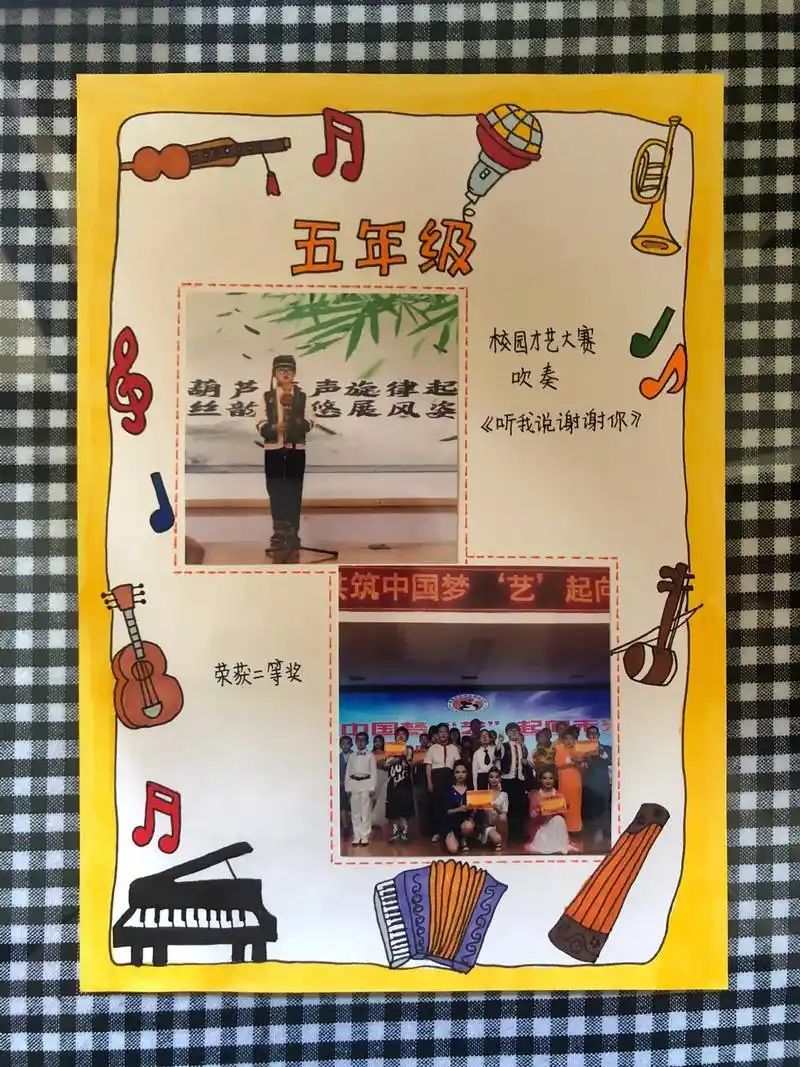 五年级
校园才艺大赛
吹奏
《听我说谢谢你》
葫芦 声旋律起
丝韵 悠展风姿
筑中国梦 ‘艺’起向
中国梦 “艺”起向未
荣获二等奖